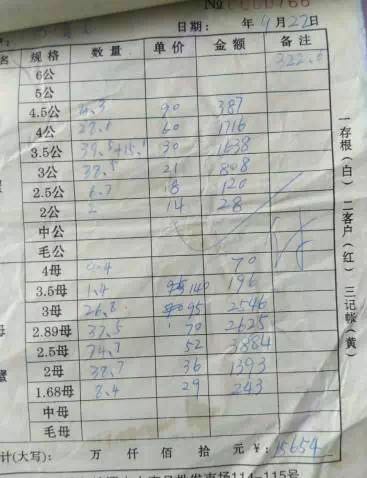 №0000766
日期： 年 9 月 22 日
名 规格 数量 单价 金额 备注
6公 322.
5公
4.5公 4.3 90 387
4公 28.6 60 1716
3.5公 39.5+15.1 30 1638
3公 38.5 21 808
2.5公 6.7 18 120
2公 2 14 28
中公
毛公
4母 0.4 70
3.5母 1.4 140 196
3母 26.8 95 2546
2.89母 37.5 70 2625
2.5母 74.7 52 3884
2母 38.7 36 1393
1.68母 8.4 29 243
中母
毛母
计(大写)： 万 仟 佰 拾 元 ¥： 15654
批发市场114-115号
一存根（白） 二客户（红） 三记帐（黄）